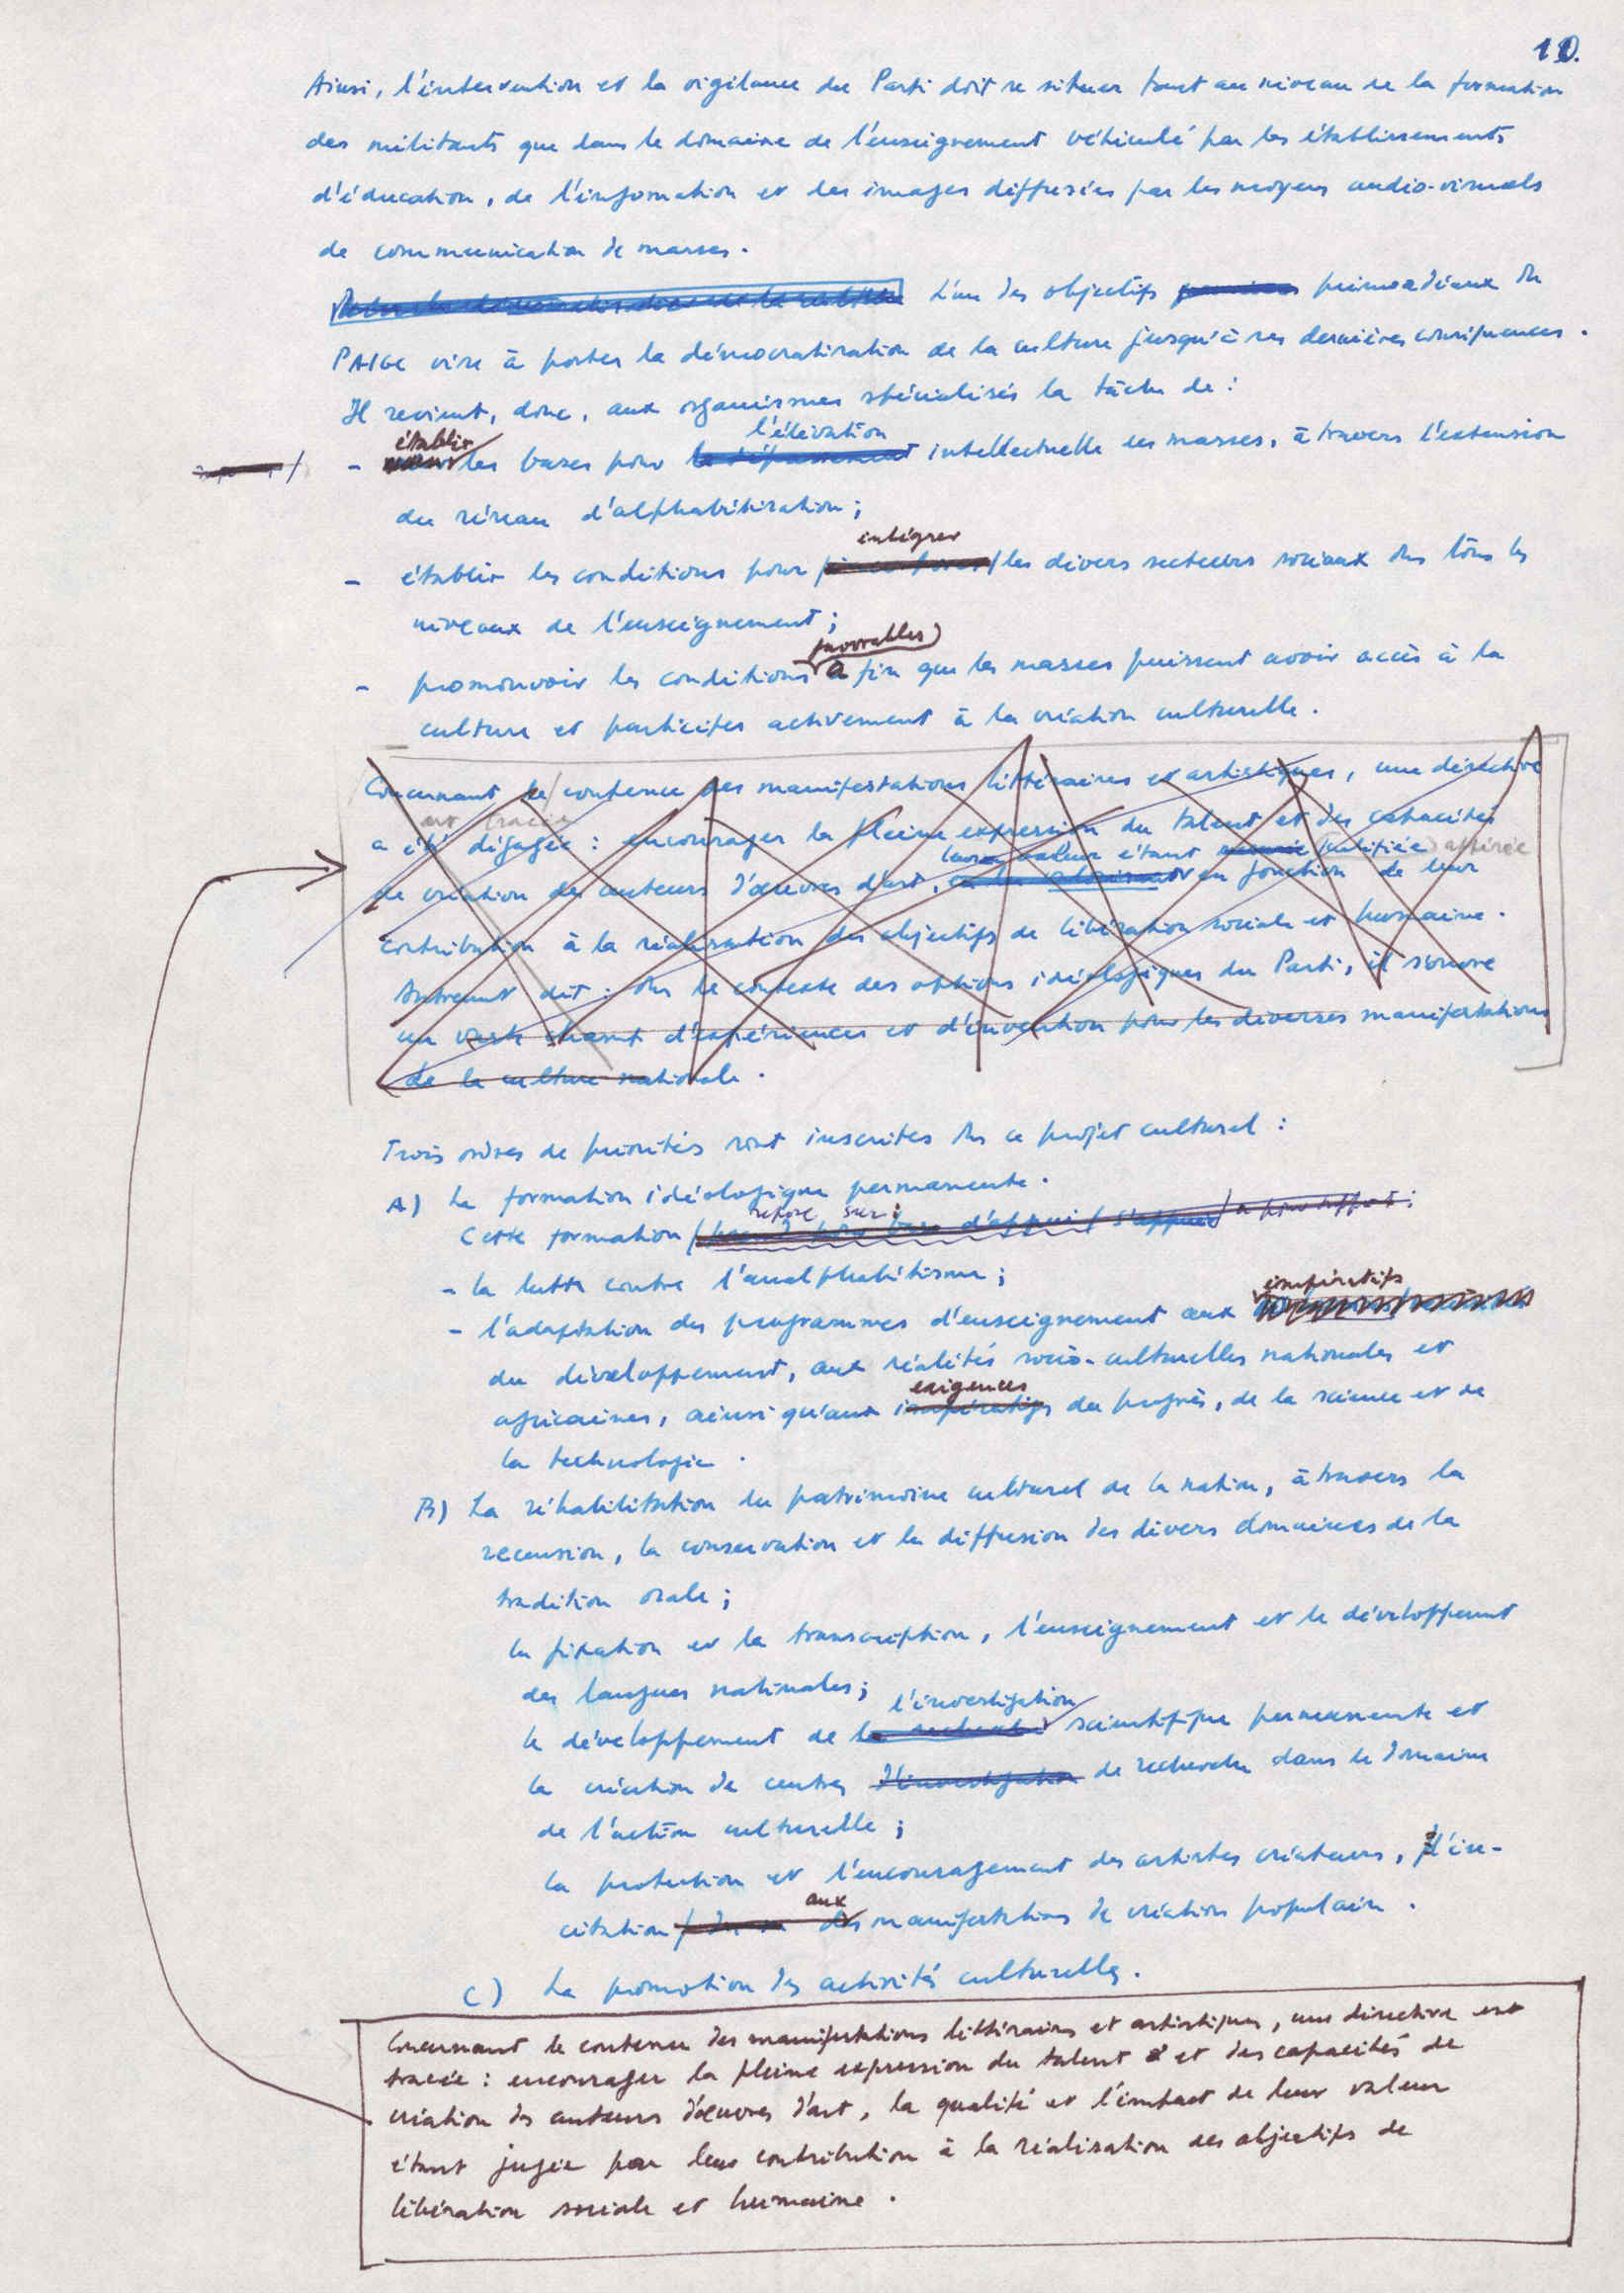 10.
Ainsi, l'intervention et la vigilance du Parti doit se situer tant au niveau de la formation
des militants que dans le domaine de l'enseignement véhiculé par les établissements
d'éducation, de l'information et des images diffusées par les moyens audio-visuels
de communication de masses.
L'un des objectifs primordiaux du
PAIGC vise à porter la démocratisation de la culture jusqu'à ses dernières conséquences.
Il revient, donc, aux organismes spécialisés la tâche de :
établir l'élévation
- les bases pour intellectuelle des masses, à travers l'extension
du réseau d'alphabétisation ;
intégrer
- établir les conditions pour les divers secteurs sociaux ds tous les
niveaux de l'enseignement ;
favorables
- promouvoir les conditions à fin que les masses puissent avoir accès à la
culture et participer activement à la création culturelle.
Concernant le contenu des manifestations littéraires et artistiques, une directive
est tracée
a été dégagée : encourager la pleine expression du talent et des capacités
leur valeur étant
de création des auteurs d'œuvres d'art, en fonction de leur
contribution à la réalisation des objectifs de libération sociale et humaine.
Autrement dit : ds le contexte des options idéologiques du Parti, il s'ouvre
un vaste champ d'expériences et d'invention pour les diverses manifestations
de la culture nationale.
Trois ordres de priorités sont inscrites ds ce projet culturel :
A) La formation idéologique permanente.
repose sur :
Cette formation
- la lutte contre l'analphabétisme ;
impératifs
- l'adaptation des programmes d'enseignement aux
du développement, aux réalités socio-culturelles nationales et
exigences
africaines, ainsi qu'aux impératifs du progrès, de la science et de
la technologie.
B) La réhabilitation du patrimoine culturel de la nation, à travers la
recension, la conservation et la diffusion des divers domaines de la
tradition orale ;
la fixation et la transcription, l'enseignement et le développement
des langues nationales ;
l'investigation
le développement de la recherche scientifique permanente et
la création de centres d'investigation de recherche dans le domaine
de l'action culturelle ;
la protection et l'encouragement des artistes créateurs, l'in-
aux
citation des manifestations de création populaire.
C) La promotion des activités culturelles.
Concernant le contenu des manifestations littéraires et artistiques, une directive est
tracée : encourager la pleine expression du talent et des capacités de
création des auteurs d'œuvres d'art, la qualité et l'impact de leur valeur
étant jugée par leur contribution à la réalisation des objectifs de
libération sociale et humaine.